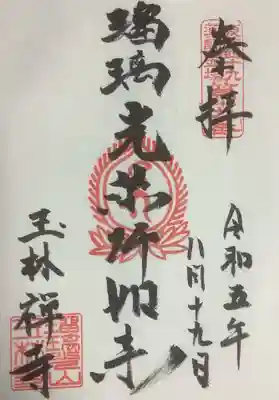 奉拝
令和五年
八月十九日
瑠璃光薬師如来
玉林禅寺